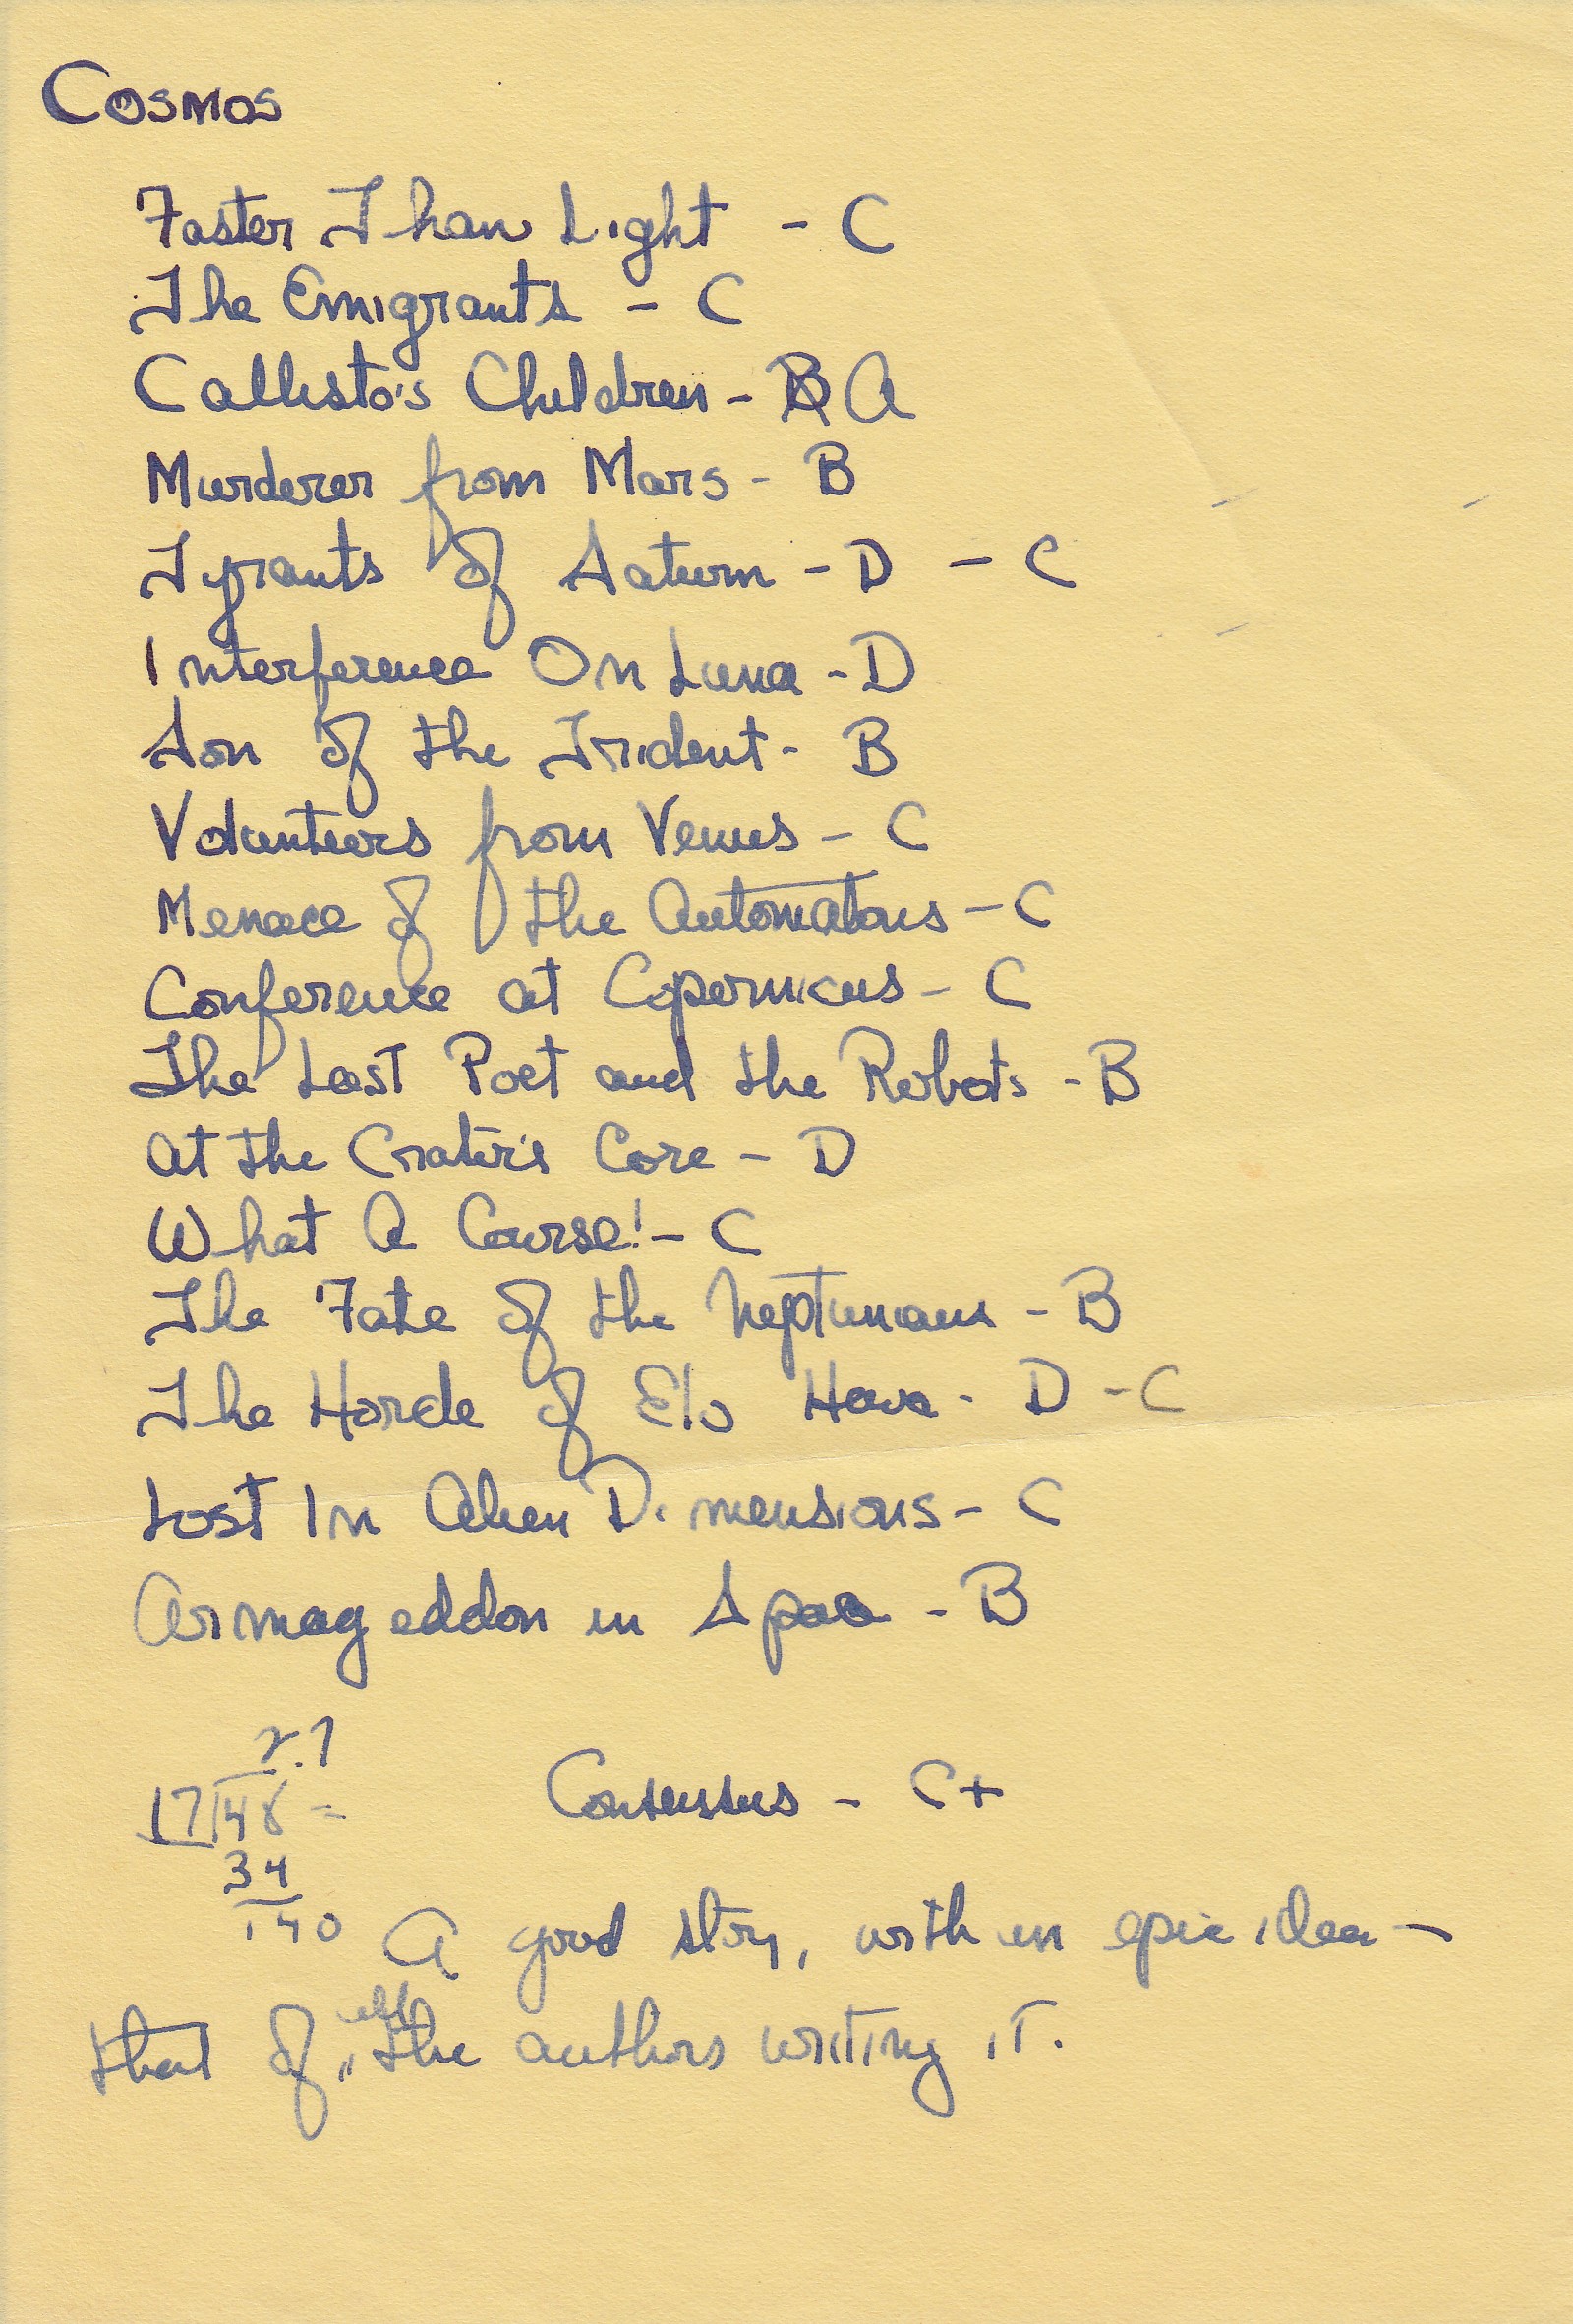 COSMOS
Faster Than Light - C
The Emigrants - C
Callisto's Children - B A
Murderer from Mars - B
Tyrants of Saturn - D - C
Interference On Luna - D
Son of the Trident - B
Volunteers from Venus - C
Menace of the Automatons - C
Conference at Copernicus - C
The Last Poet and the Robots - B
At the Crater's Core - D
What A Course! - C
The Fate of the Neptunians - B
The Horde of Elo Hava - D - C
Lost In Alien Dimensions - C
Armageddon in Space - B
2.7
17 48 =
Consensus - C+
34
140
A good story, with an epic idea -
that of the authors writing it.